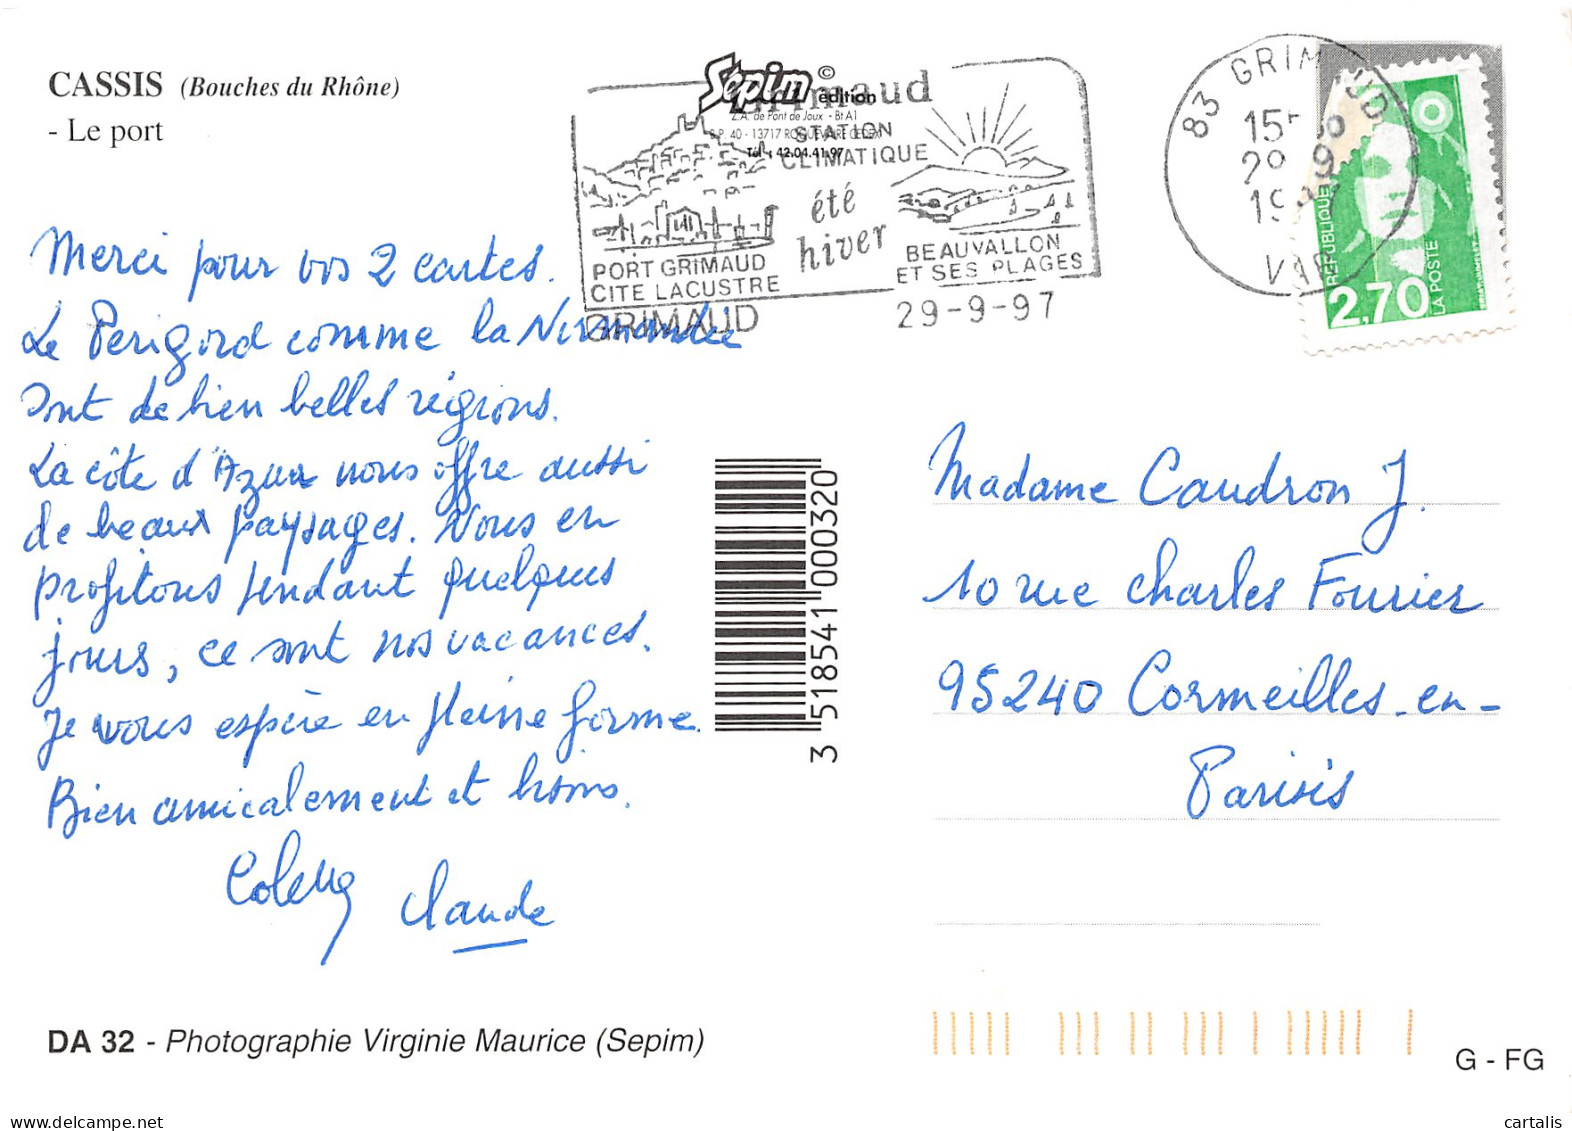 CASSIS (Bouches du Rhône)
- Le port
Sepim ©
édition
Z.A. de Pont de Joux - Bt A1
B.P. 40 - 13717 ROQUEVAIRE CEDEX
Tél : 42.04.41.97
Grimaud
STATION
CLIMATIQUE
été
hiver
PORT GRIMAUD
CITE LACUSTRE
BEAUVALLON
ET SES PLAGES
GRIMAUD
29-9-97
83 GRIMAUD
15H
29
19
VAR
REPUBLIQUE
2,70
LA POSTE
Merci pour vos 2 cartes.
Le Perigord comme la Normandie
sont de bien belles régions.
La côte d'Azur nous offre aussi
de beaux paysages. Nous en
profitons pendant quelques
jours, ce sont nos vacances.
Je vous espère en pleine forme.
Bien amicalement et bisous.
Claude
Madame Caudron J.
10 rue Charles Fourier
95240 Cormeilles-en-
Parisis
3 518541 000320
DA 32 - Photographie Virginie Maurice (Sepim)
G - FG
delcampe.net
cartalis